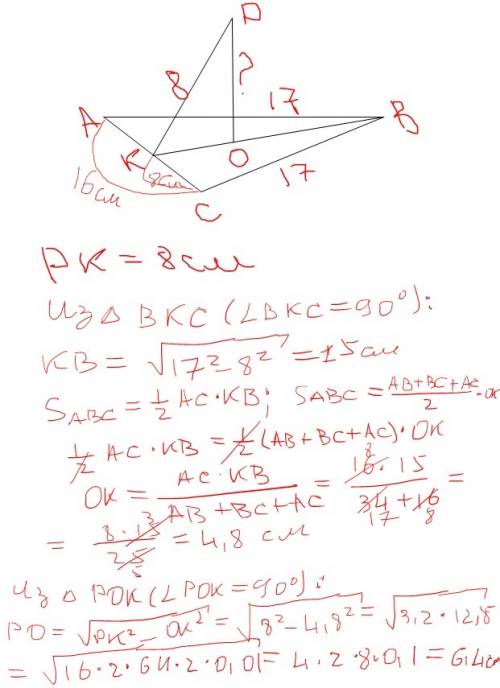 P
8
?
17
A
B
K
O
8см
17
16см
C
PK = 8см
Из △ BKC (∠BKC = 90°):
KB = √17² - 8² = 15см
S_ABC = 1/2 AC · KB; S_ABC = (AB+BC+AC)/2 · OK
1/2 AC · KB = 1/2 (AB + BC + AC) · OK
OK = (AC · KB)/(AB + BC + AC) = (16 · 15)/(34 + 16) =
8
17 8
= (8 · 15)/25 = 4,8 см
3
5
Из △ POK (∠POK = 90°):
PO = √PK² - OK² = √8² - 4,8² = √3,2 · 12,8
= √16 · 2 · 64 · 2 · 0,01 = 4 · 2 · 8 · 0,1 = 6,4см